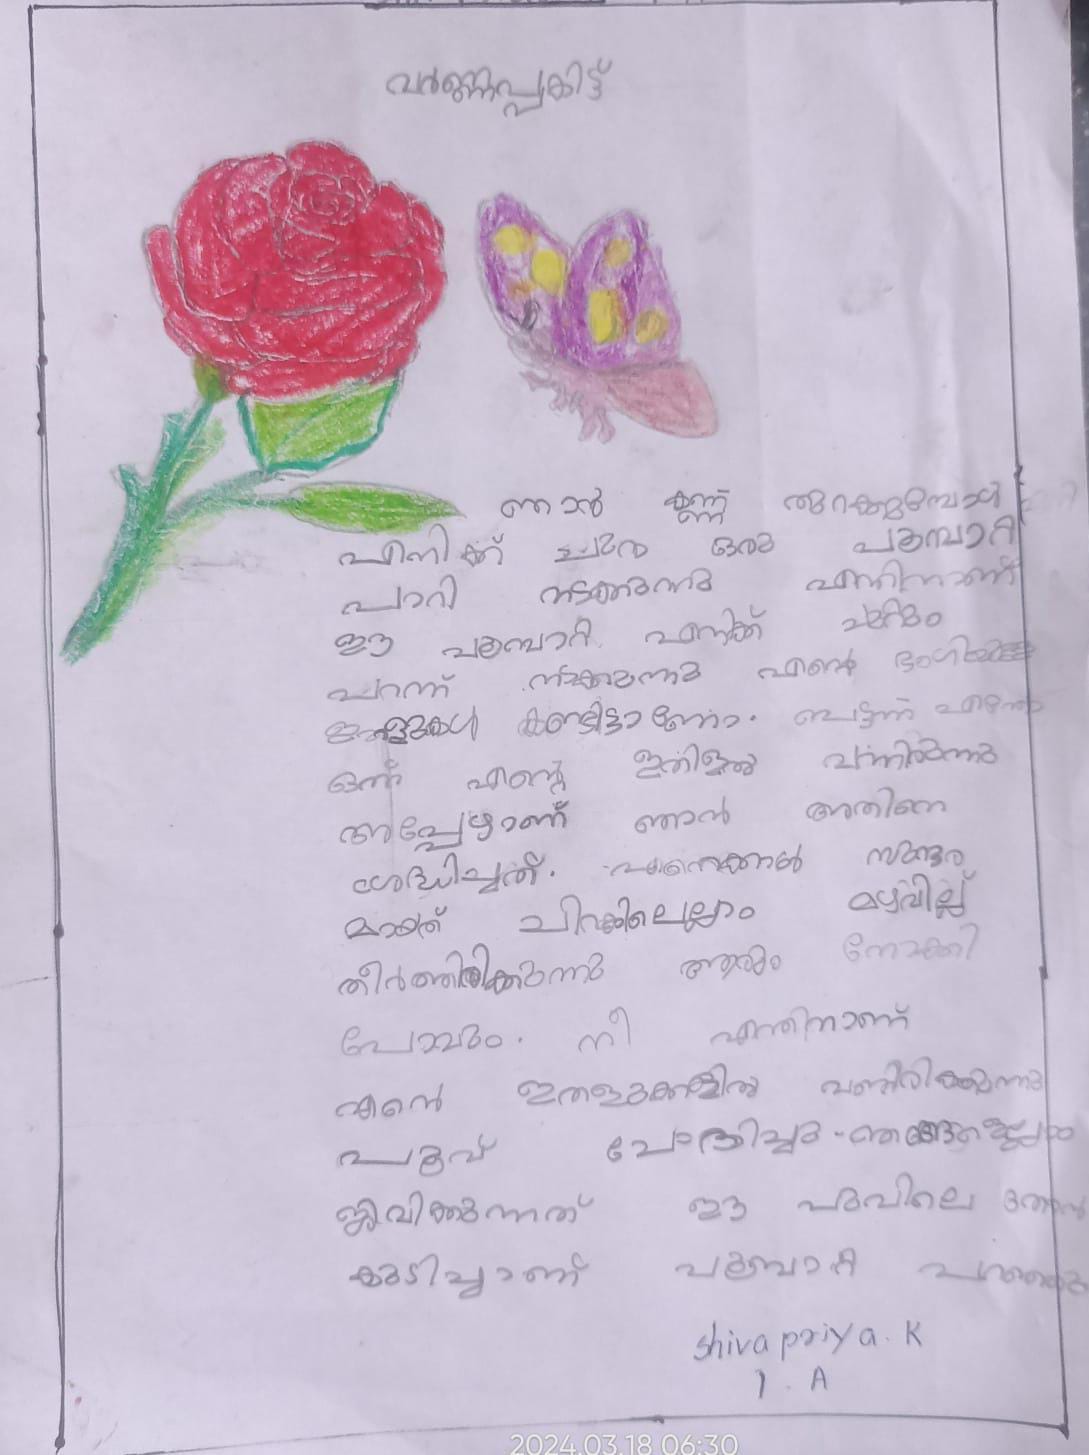 വർണ്ണപ്പകിട്ട്
ഞാൻ കണ്ണ് തുറക്കുമ്പോൾ
എനിക്ക് ചുറ്റും ഒരു പൂമ്പാറ്റ
പാറി നടക്കുന്നു എന്തിനാണ്
ഈ പൂമ്പാറ്റ എനിക്ക് ചുറ്റും
പറന്ന് നടക്കുന്നു എൻെറ ഭംഗിയുള്ള
ഇതളുകൾ കണ്ടിട്ടാണോ. പെട്ടന്ന് എന്തോ
ഒന്ന് എന്റെ ഇതളിൽ വന്നിരുന്നു
അപ്പേഴാണ് ഞാൻ അതിനെ
ശ്രദ്ധിച്ചത്. എന്നെക്കാൾ സുന്ദര
മായത് ചിറകിലെല്ലാം മഴവില്ല്
തീർത്തിരിക്കുന്നു ആരും നോക്കി
പോവും. നീ എന്തിനാണ്
എൻെ ഇതളുകളിൽ വന്നിരിക്കുന്നു
പൂവ് ചോദിച്ചു
ജീവിക്കുന്നത് ഈ പൂവിലെ തേൻ
കുടിച്ചാണ് പൂമ്പാറ്റ
Shivapriya. K
1. A
2024.03.18 06:30